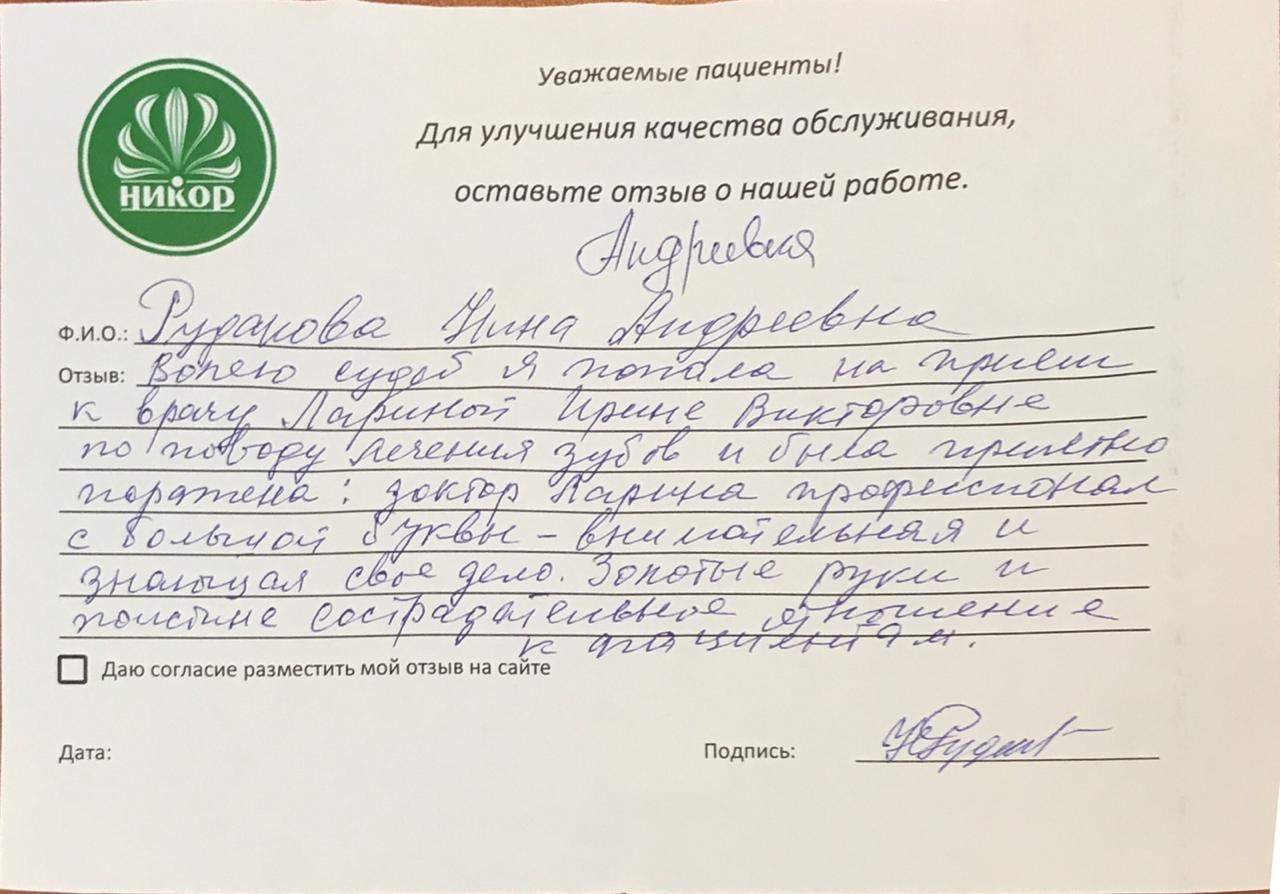 НИКОР
Уважаемые пациенты!
Для улучшения качества обслуживания,
оставьте отзыв о нашей работе.
Андреевна
Ф.И.О.: Рудакова Нина Андреевна
Отзыв: Волею судеб я попала на прием
к врачу Лариной Ирине Викторовне
по поводу лечения зубов и была приятно
поражена: доктор Ларина профессионал
с большой буквы – внимательная и
знающая свое дело. Золотые руки и
поистине сострадательное отношение
к пациентам.
Даю согласие разместить мой отзыв на сайте
Дата:
Подпись: